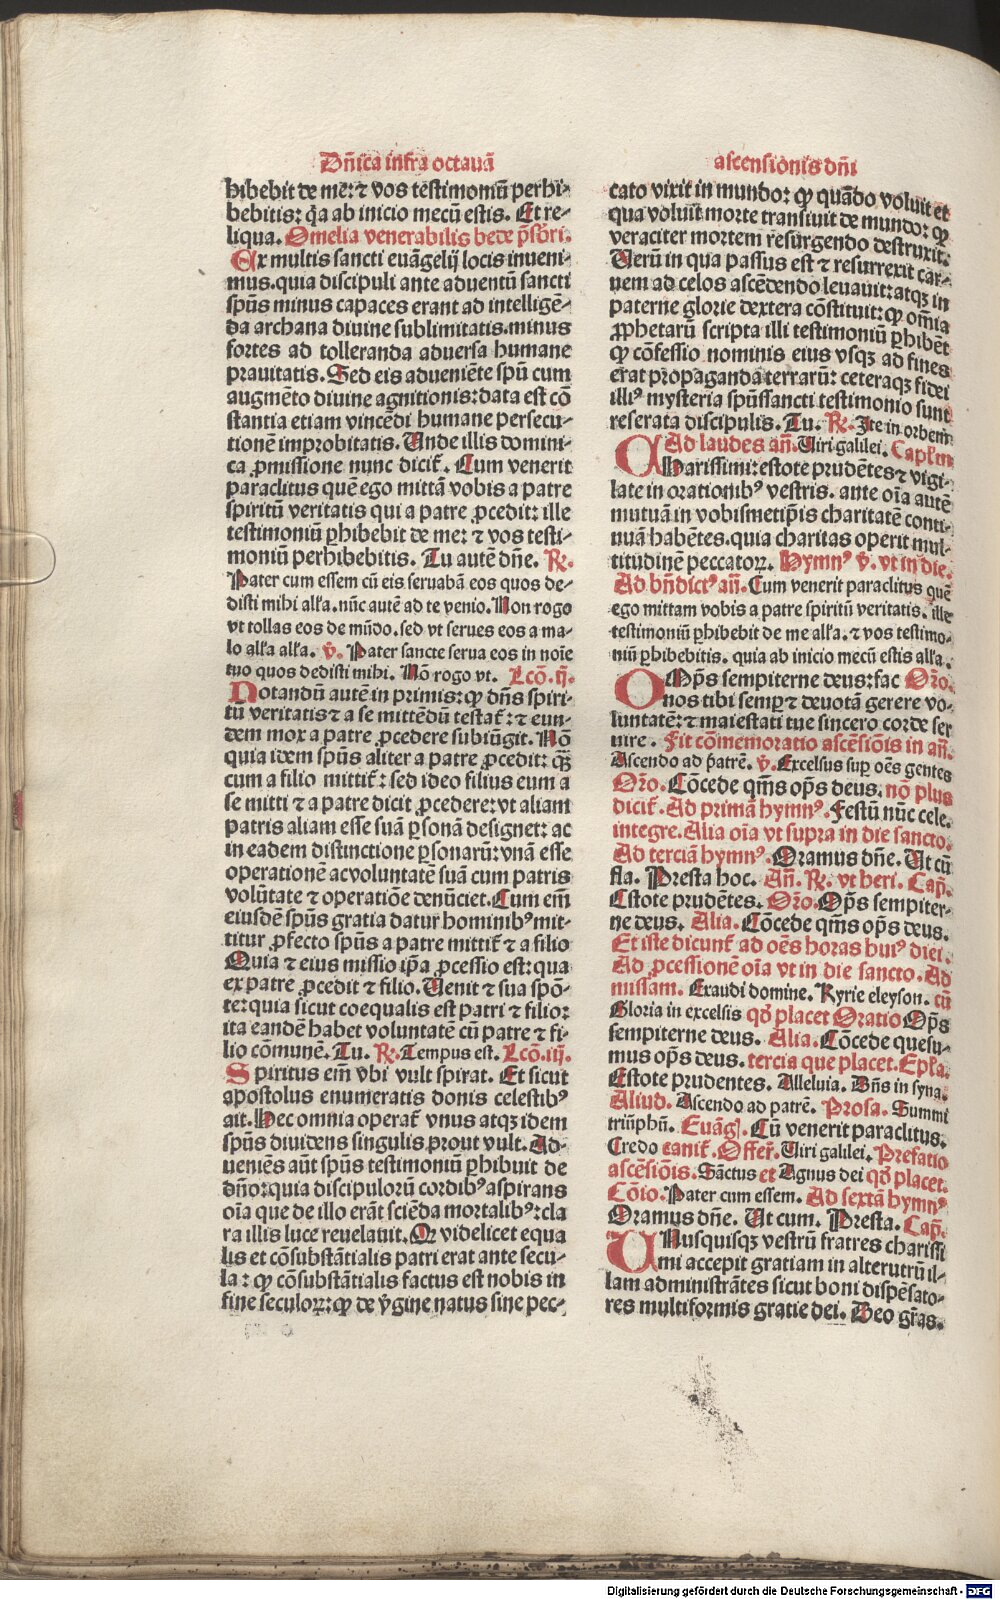 Dn̄ica infra octauā
hibebit de me: ⁊ vos testimoniū perhi-
bebitis: q̄a ab inicio mecū estis. Et re-
liqua. Omelia venerabilis bede p̄sbri.
Ex multis sancti euāgelij locis inueni-
mus. quia discipuli ante aduentū sancti
sp̄us minus capaces erant ad intelligē-
da archana diuine sublimitatis. minus
fortes ad tolleranda aduersa humane
prauitatis. Sed eis adueniēte sp̄u cum
augmēto diuine agnitionis: data est cō
stantia etiam vincēdi humane persecu-
tionē improbitatis. Unde illis domini-
ca ꝓmissione nunc dicit᷑. Cum venerit
paraclitus quē ego mittā vobis a patre
spiritū veritatis qui a patre ꝓcedit: ille
testimoniū ꝑhibebit de me: ⁊ vos testi-
moniū perhibebitis. Tu autē dn̄e. ℞.
Pater cum essem cū eis seruabā eos quos de-
disti mihi alľa. nūc autē ad te venio. Non rogo
vt tollas eos de mūdo. sed vt serues eos a ma-
lo alľa alľa. ℣. Pater sancte serua eos in noīe
tuo quos dedisti mihi. Nō rogo vt. Lcō. ij.
Notandū autē in primis: ꝙ dn̄s spiri-
tū veritatis ⁊ a se mittēdū testat᷑: ⁊ eun-
dem mox a patre ꝓcedere subiūgit. Nō
quia idem sp̄us aliter a patre ꝓcedit: q̄ꝫ
cum a filio mittit᷑: sed ideo filius eum a
se mitti ⁊ a patre dicit ꝓcedere: vt aliam
patris aliam esse suā ꝑsonā designet: ac
in eadem distinctione ꝑsonarū: vnā esse
operationē ac volūtatē suā cum patris
volūtate ⁊ operatiōe denūciet. Cum em̄
eiusdē sp̄us gratia datur hominibꝰ mit-
titur ꝓfecto sp̄us a patre mittit᷑ ⁊ a filio
Quia ⁊ eius missio ip̄a ꝓcessio est: qua
ex patre ꝓcedit ⁊ filio. Uenit ⁊ sua spō-
te: quia sicut coequalis est patri ⁊ filio:
ita eandē habet voluntatē cū patre ⁊ fi-
lio cōmunē. Tu. ℞. Tempus est. Lcō. iij.
Spiritus em̄ vbi vult spirat. Et sicut
apostolus enumeratis donis celestibꝰ
ait. Hec omnia operat᷑ vnus atqꝫ idem
sp̄us diuidens singulis prout vult. Ad-
ueniēs aūt sp̄us testimoniū ꝑhibuit de
dn̄o: quia discipulorū cordibꝰ aspirans
oīa que de illo erāt sciēda mortalibꝰ: cla
ra illis luce reuelauit. Qꝛ videlicet equa
lis et cōsubstātialis patri erat ante secu-
la: ꝙ cōsubstātialis factus est nobis in
fine seculoꝝ: ꝙ de v̄gine natus sine pec-
ascensionis dn̄i
cato vixit in mundo: ꝙ quādo voluit et
qua voluit morte transiuit de mundo: ꝙ
veraciter mortem resurgendo destruxit.
Uerū in qua passus est ⁊ resurrexit car-
nem ad celos ascēdendo leuauit: atqꝫ in
paterne glorie dextera cōstituit: ꝙ om̄ia
ꝓphetarū scripta illi testimoniū ꝑhibēt
ꝙ cōfessio nominis eius vsqꝫ ad fines
erat propaganda terrarū: ceteraqꝫ fidei
illiꝰ mysteria sp̄ussancti testimonio sunt
reserata discipulis. Tu. ℞. Ite in orbem
Ad laudes an̄. Uiri galilei. Capľm
CHarissimi: estote prudētes ⁊ vigi-
late in orationibꝰ vestris. ante oīa autē
mutuā in vobismetip̄is charitatē conti-
nuā habētes. quia charitas operit mul-
titudinē peccatoꝝ. Hymnꝰ ℣. vt in die.
Ad bn̄dictꝰ an̄. Cum venerit paraclitus quē
ego mittam vobis a patre spiritū veritatis. ille
testimoniū ꝑhibebit de me alľa. ⁊ vos testimo-
niū ꝑhibebitis. quia ab inicio mecū estis alľa.
OMp̄s sempiterne deus: fac Oro.
nos tibi semꝑ ⁊ deuotā gerere vo-
luntatē: ⁊ maiestati tue sincero corde ser
uire. Fit cōmemoratio ascēsiōis in an̄.
Ascendo ad patrē. ℣. Excelsus suꝑ oēs gentes
Oro. Cōcede qm̄s op̄s deus. nō plus
dicit᷑. Ad primā hymnꝰ. Festū nūc cele.
integre. Alia oīa vt supra in die sancto.
Ad terciā hymnꝰ. Oramus dn̄e. Ut cū
fla. Presta hoc. An̄. ℞. vt heri. Cap̄.
Estote prudētes. Oro. Op̄s sempiter-
ne deus. Alia. Cōcede qm̄s op̄s deus.
Et iste dicunt᷑ ad oēs horas huiꝰ diei.
Ad ꝓcessionē oīa vt in die sancto. Ad
missam. Exaudi domine. Kyrie eleyson. cū
Gloria in excelsis qď placet Oratio Op̄s
sempiterne deus. Alia. Cōcede quesu-
mus op̄s deus. tercia que placet. Epľa.
Estote prudentes. Alleluia. Dn̄s in syna.
Aliud. Ascendo ad patrē. Prosa. Summi
triūphū. Euāg̃. Cū venerit paraclitus.
Credo canit᷑. Offer̄. Uiri galilei. Prefatio
ascēsiōis. Sāctus et Agnus dei qď placet.
Cōio. Pater cum essem. Ad sextā hymnꝰ
Oramus dn̄e. Ut cum. Presta. Cap̄.
UNusquisqꝫ vestrū fratres charissi
mi accepit gratiam in alterutrū il-
lam administrātes sicut boni dispēsato-
res multiformis gratie dei. Deo gr̄as.
Digitalisierung gefördert durch die Deutsche Forschungsgemeinschaft - DFG